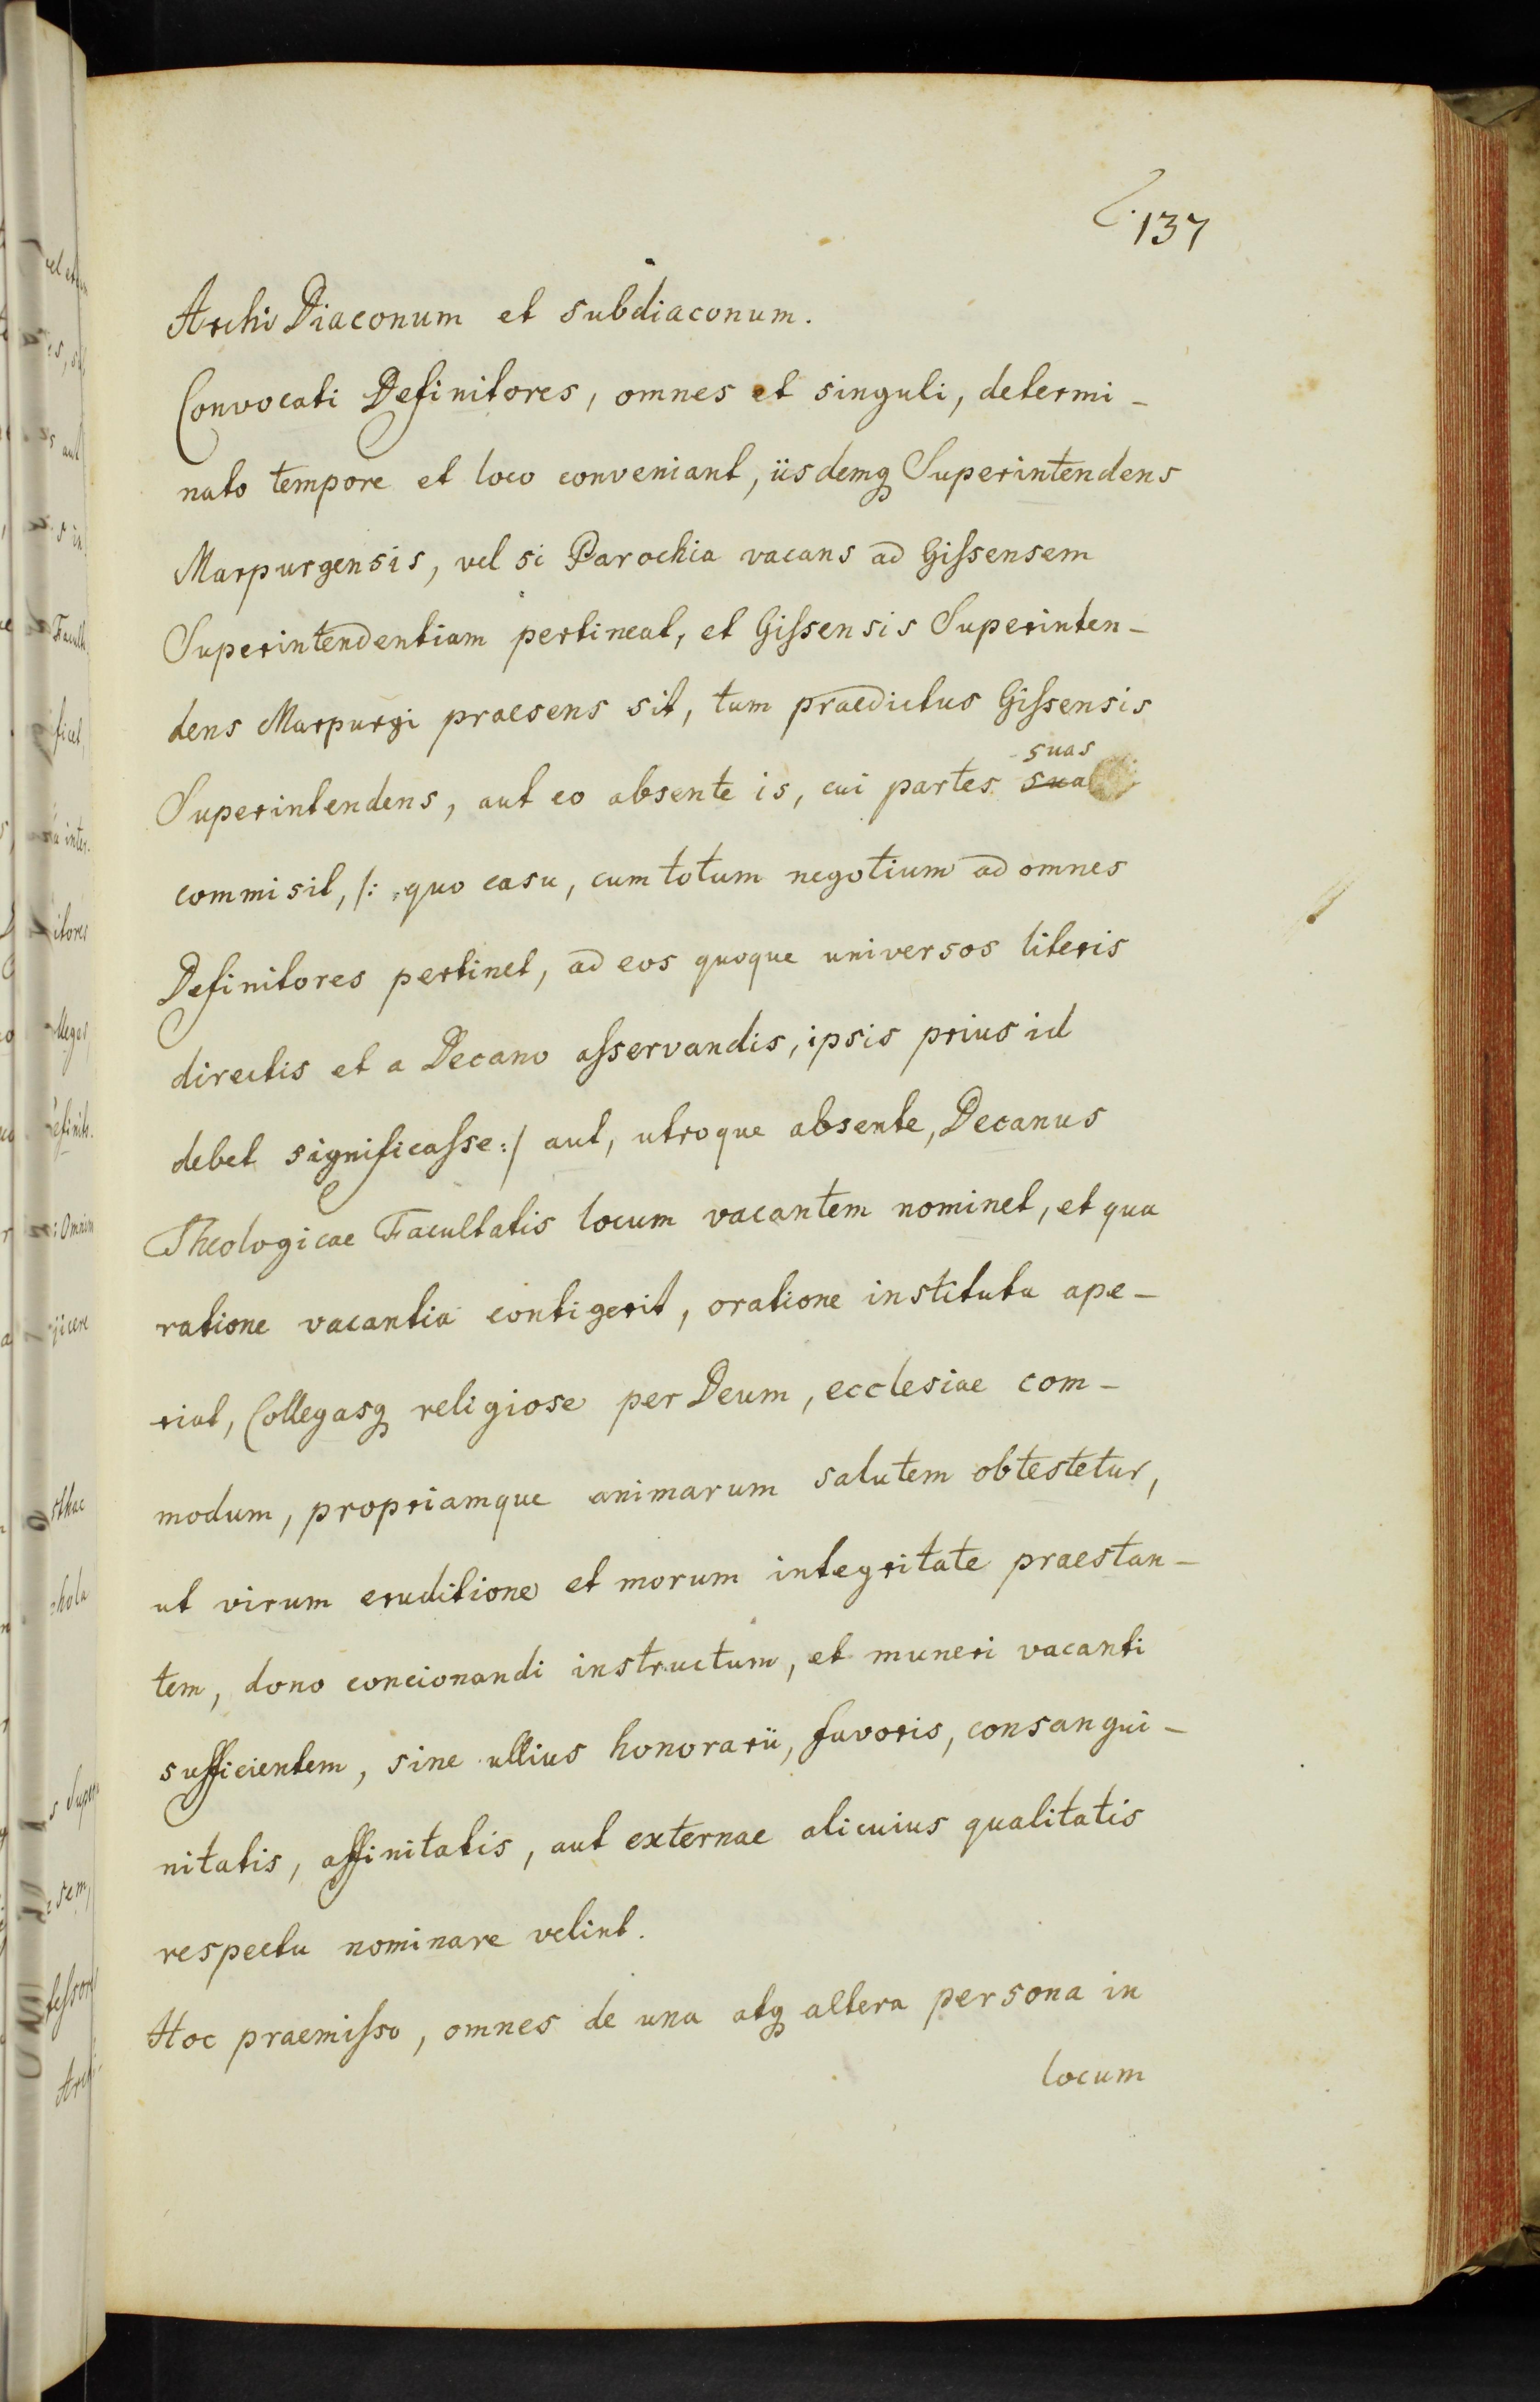 137
Archi Diaconum et subdiaconum.
Convocati Definitores, omnes et singuli, determi-
nato tempore et loco conveniant, iisdemq Superintendens
Marpurgensis, vel si Parochia vacans ad Gissensem
Superintendentiam pertineat, et Gissensis Superinten-
dens Marpurgi praesens sit, tum praedictus Gissensis
suas
Superintendens, aut eo absente is, cui partes sua
commisit, /: quo casu, cum totum negotium ad omnes
Definitores pertinet, ad eos quoque universos literis
directis et a Decano asservandis, ipsis prius id
debet significasse :/ aut, utroque absente, Decanus
Theologicae Facultatis locum vacantem nominet, et qua
ratione vacantia contigerit, oratione instituta ape-
riat, Collegasq religiose per Deum, ecclesiae com-
modum, propriamque animarum salutem obtestetur,
ut virum eruditione et morum integritate praestan-
tem, dono concionandi instructum, et muneri vacanti
sufficientem, sine ullius honorarii, favoris, consangui-
nitatis, affinitatis, aut externae alicuius qualitatis
respectu nominare velint.
Hoc praemisso, omnes de una atq altera persona in
locum